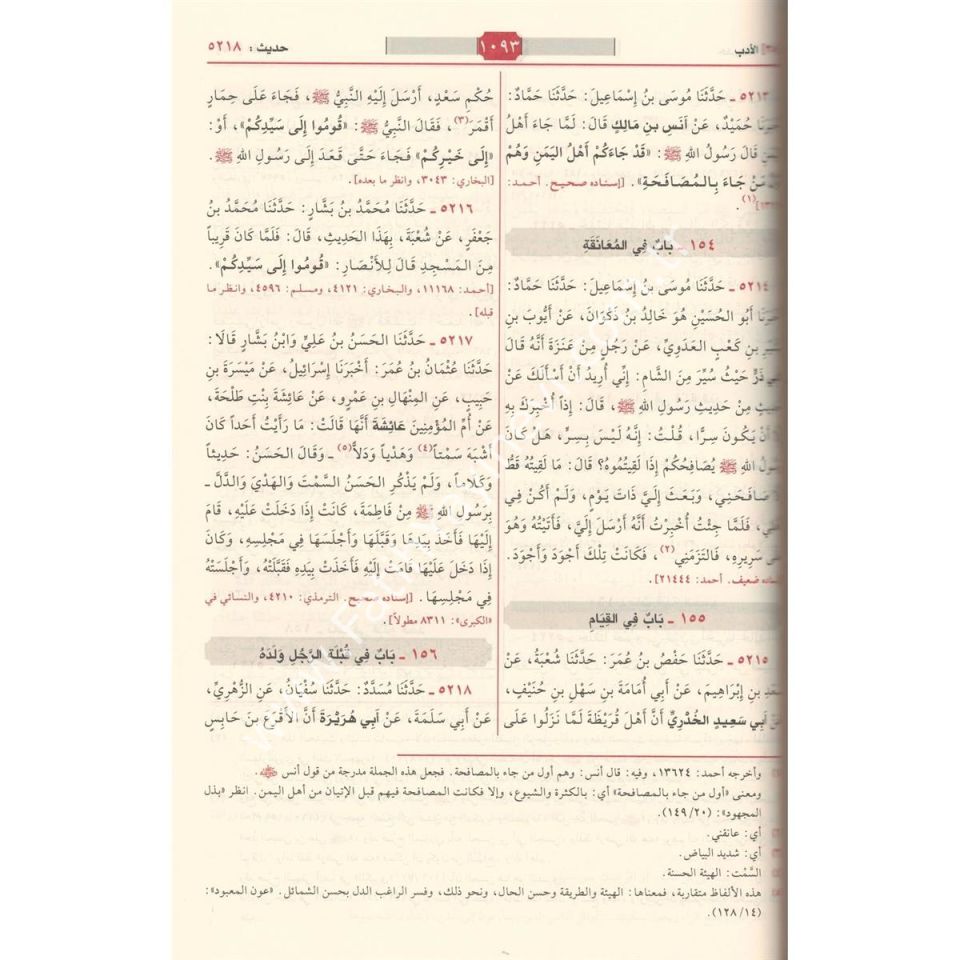 الأدب
١٠٩٣
حديث : ٥٢١٨
٥٢١٣ ـ حَدَّثَنَا مُوسَى بنُ إِسْمَاعِيلَ: حَدَّثَنَا حَمَّادٌ:
حُمَيْدٌ، عَنْ أَنَسِ بنِ مَالِكٍ قَالَ: لَمَّا جَاءَ أَهْلُ
قَالَ رَسُولُ اللهِ ﷺ: «قَدْ جَاءَكُمْ أَهْلُ اليَمَنِ وَهُمْ
مَنْ جَاءَ بِالمُصَافَحَةِ». [إسناده صحيح. أحمد:
(١).
١٥٤ ـ بَابٌ فِي المُعَانَقَةِ
٥٢١٤ ـ حَدَّثَنَا مُوسَى بنُ إِسْمَاعِيلَ: حَدَّثَنَا حَمَّادٌ:
أَبُو الحُسَيْنِ هُوَ خَالِدُ بنُ ذَكْوَانَ، عَنْ أَيُّوبَ بنِ
بنِ كَعْبٍ العَدَوِيِّ، عَنْ رَجُلٍ مِنْ عَنَزَةَ أَنَّهُ قَالَ
ذَرٍّ حَيْثُ سُيِّرَ مِنَ الشَّامِ: إِنِّي أُرِيدُ أَنْ أَسْأَلَكَ عَنْ
مِنْ حَدِيثِ رَسُولِ اللهِ ﷺ، قَالَ: إِذاً أُخْبِرَكَ بِهِ
أَنْ يَكُونَ سِرًّا، قُلْتُ: إِنَّهُ لَيْسَ بِسِرٍّ، هَلْ كَانَ
رَسُولُ اللهِ ﷺ يُصَافِحُكُمْ إِذَا لَقِيتُمُوهُ؟ قَالَ: مَا لَقِيتُهُ قَطُّ
صَافَحَنِي، وَبَعَثَ إِلَيَّ ذَاتَ يَوْمٍ، وَلَمْ أَكُنْ فِي
، فَلَمَّا جِئْتُ أُخْبِرْتُ أَنَّهُ أَرْسَلَ إِلَيَّ، فَأَتَيْتُهُ وَهُوَ
سَرِيرِهِ، فَالتَزَمَنِي(٢)، فَكَانَتْ تِلْكَ أَجْوَدَ وَأَجْوَدَ.
ضعيف. أحمد: ٢١٤٤٤].
١٥٥ ـ بَابٌ فِي القِيَامِ
٥٢١٥ ـ حَدَّثَنَا حَفْصُ بنُ عُمَرَ: حَدَّثَنَا شُعْبَةُ، عَنْ
بنِ إِبْرَاهِيمَ، عَنْ أَبِي أُمَامَةَ بنِ سَهْلِ بنِ حُنَيْفٍ،
أَبِي سَعِيدٍ الخُدْرِيِّ أَنَّ أَهْلَ قُرَيْظَةَ لَمَّا نَزَلُوا عَلَى
حُكْمِ سَعْدٍ، أَرْسَلَ إِلَيْهِ النَّبِيُّ ﷺ، فَجَاءَ عَلَى حِمَارٍ
أَقْمَرَ(٣)، فَقَالَ النَّبِيُّ ﷺ: «قُومُوا إِلَى سَيِّدِكُمْ»، أَوْ:
«إِلَى خَيْرِكُمْ» فَجَاءَ حَتَّى قَعَدَ إِلَى رَسُولِ اللهِ ﷺ.
[البخاري: ٣٠٤٣، وانظر ما بعده].
٥٢١٦ ـ حَدَّثَنَا مُحَمَّدُ بنُ بَشَّارٍ: حَدَّثَنَا مُحَمَّدُ بنُ
جَعْفَرٍ، عَنْ شُعْبَةَ، بِهَذَا الحَدِيثِ، قَالَ: فَلَمَّا كَانَ قَرِيباً
مِنَ المَسْجِدِ قَالَ لِلأَنْصَارِ: «قُومُوا إِلَى سَيِّدِكُمْ».
[أحمد: ١١١٦٨، والبخاري: ٤١٢١، ومسلم: ٤٥٩٦، وانظر ما
قبله].
٥٢١٧ ـ حَدَّثَنَا الحَسَنُ بنُ عَلِيٍّ وَابْنُ بَشَّارٍ قَالَا:
حَدَّثَنَا عُثْمَانُ بنُ عُمَرَ: أَخْبَرَنَا إِسْرَائِيلُ، عَنْ مَيْسَرَةَ بنِ
حَبِيبٍ، عَنِ المِنْهَالِ بنِ عَمْرٍو، عَنْ عَائِشَةَ بِنْتِ طَلْحَةَ،
عَنْ أُمِّ المُؤْمِنِينَ عَائِشَةَ أَنَّهَا قَالَتْ: مَا رَأَيْتُ أَحَداً كَانَ
أَشْبَهَ سَمْتاً(٤) وَهَدْياً وَدَلًّا(٥) ـ وَقَالَ الحَسَنُ: حَدِيثاً
وَكَلَاماً، وَلَمْ يَذْكُرِ الحَسَنُ السَّمْتَ وَالهَدْيَ وَالدَّلَّ ـ
بِرَسُولِ اللهِ ﷺ مِنْ فَاطِمَةَ، كَانَتْ إِذَا دَخَلَتْ عَلَيْهِ، قَامَ
إِلَيْهَا فَأَخَذَ بِيَدِهَا وَقَبَّلَهَا وَأَجْلَسَهَا فِي مَجْلِسِهِ، وَكَانَ
إِذَا دَخَلَ عَلَيْهَا قَامَتْ إِلَيْهِ فَأَخَذَتْ بِيَدِهِ فَقَبَّلَتْهُ، وَأَجْلَسَتْهُ
فِي مَجْلِسِهَا. [إسناده صحيح. الترمذي: ٤٢١٠، والنسائي في
«الكبرى»: ٨٣١١ مطولاً].
١٥٦ ـ بَابٌ فِي قُبْلَةِ الرَّجُلِ وَلَدَهُ
٥٢١٨ ـ حَدَّثَنَا مُسَدَّدٌ: حَدَّثَنَا سُفْيَانُ، عَنِ الزُّهْرِيِّ،
عَنْ أَبِي سَلَمَةَ، عَنْ أَبِي هُرَيْرَةَ أَنَّ الأَقْرَعَ بنَ حَابِسٍ
وأخرجه أحمد: ١٣٦٢٤، وفيه: قال أنس: وهم أول من جاء بالمصافحة. فجعل هذه الجملة مدرجة من قول أنس ﷺ.
ومعنى «أول من جاء بالمصافحة» أي: بالكثرة والشيوع، وإلا فكانت المصافحة فيهم قبل الإتيان من أهل اليمن. انظر «بذل
المجهود»: (١٤٩/٢٠).
أي: عانقني.
أي: شديد البياض.
السَّمْت: الهيئة الحسنة.
هذه الألفاظ متقاربة، فمعناها: الهيئة والطريقة وحسن الحال، ونحو ذلك، وفسر الراغب الدل بحسن الشمائل. «عون المعبود»:
(١٢٨/١٤).